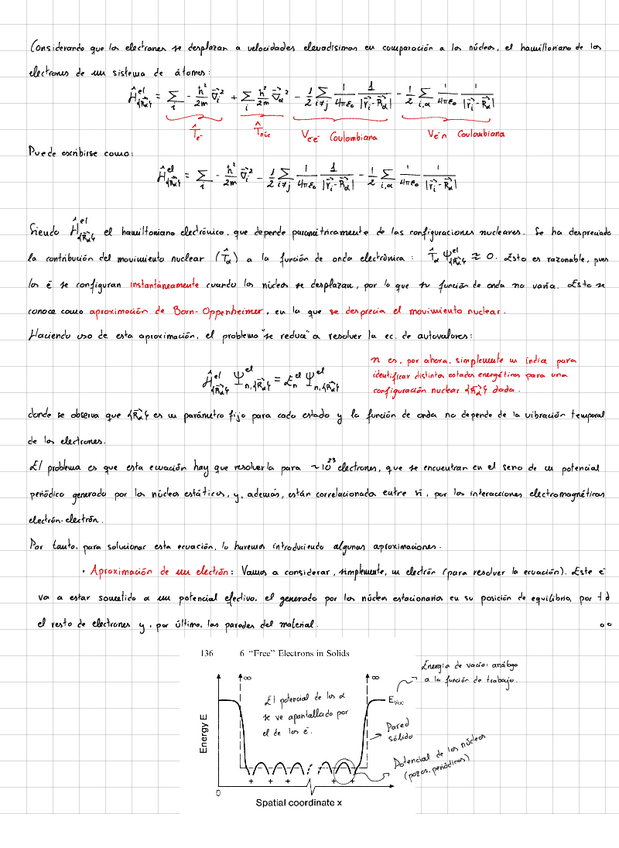 Considerando que los electrones se desplazan a velocidades elevadísimas en comparación a los núcleos, el hamiltoniano de los
electrones de un sistema de átomos:
Ĥ^{el}_{{R⃗_α}} = Σ_i - ħ²/2m ∇⃗_i² + Σ_i ħ²/2m ∇⃗_α² - 1/2 Σ_{i≠j} 1/4πε₀ 1/|r⃗_i-R⃗_α| - 1/2 Σ_{i,α} 1/4πε₀ 1/|r⃗_i-R⃗_α|
T̂_{e⁻} T̂_{nuc} V_{e⁻e⁻} Coulombiana V_{e⁻n} Coulombiana
Puede escribirse como:
Ĥ^{el}_{{R⃗_α}} = Σ_i - ħ²/2m ∇⃗_i² - 1/2 Σ_{i≠j} 1/4πε₀ 1/|r⃗_i-R⃗_α| - 1/2 Σ_{i,α} 1/4πε₀ 1/|r⃗_i-R⃗_α|
Siendo Ĥ^{el}_{{R⃗_α}} el hamiltoniano electrónico, que depende paramétricamente de las configuraciones nucleares. Se ha despreciado
la contribución del movimiento nuclear (T̂_α) a la función de onda electrónica: T̂_α Ψ^{el}_{{R⃗_α}} ≈ 0. Esto es razonable, pues
los e⁻ se configuran instantáneamente cuando los núcleos se desplazan, por lo que su función de onda no varía. Esto se
conoce como aproximación de Born-Oppenheimer, en la que se desprecia el movimiento nuclear.
Haciendo uso de esta aproximación, el problema "se reduce" a resolver la ec. de autovalores:
Ĥ^{el}_{{R⃗_α}} Ψ^{el}_{n,{R⃗_α}} = E^{el}_n Ψ^{el}_{n,{R⃗_α}}
n es, por ahora, simplemente un índice para
identificar distintos estados energéticos para una
configuración nuclear {R⃗_α} dada.
donde se observa que {R⃗_α} es un parámetro fijo para cada estado y la función de onda no depende de la vibración temporal
de los electrones.
El problema es que esta ecuación hay que resolverla para ~10²³ electrones, que se encuentran en el seno de un potencial
periódico generado por los núcleos estáticos, y, además, están correlacionada entre sí, por las interacciones electromagnéticas
electrón-electrón.
Por tanto, para solucionar esta ecuación, lo haremos introduciendo algunas aproximaciones.
• Aproximación de un electrón: Vamos a considerar, simplemente, un electrón (para resolver la ecuación). Este e⁻
va a estar sometido a un potencial efectivo, el generado por los núcleos estacionarios en su posición de equilibrio, por
el resto de electrones y, por último, las paredes del material.
136 6 "Free" Electrons in Solids
∞ ∞
Energía de vacío: análogo
a la función de trabajo.
El potencial de los α
se ve apantallado por
el de los e⁻.
E_{Vac}
Pared
sólido
Potencial de los núcleos
(pozos, periódicos)
Energy E
+ + + +
0
Spatial coordinate x